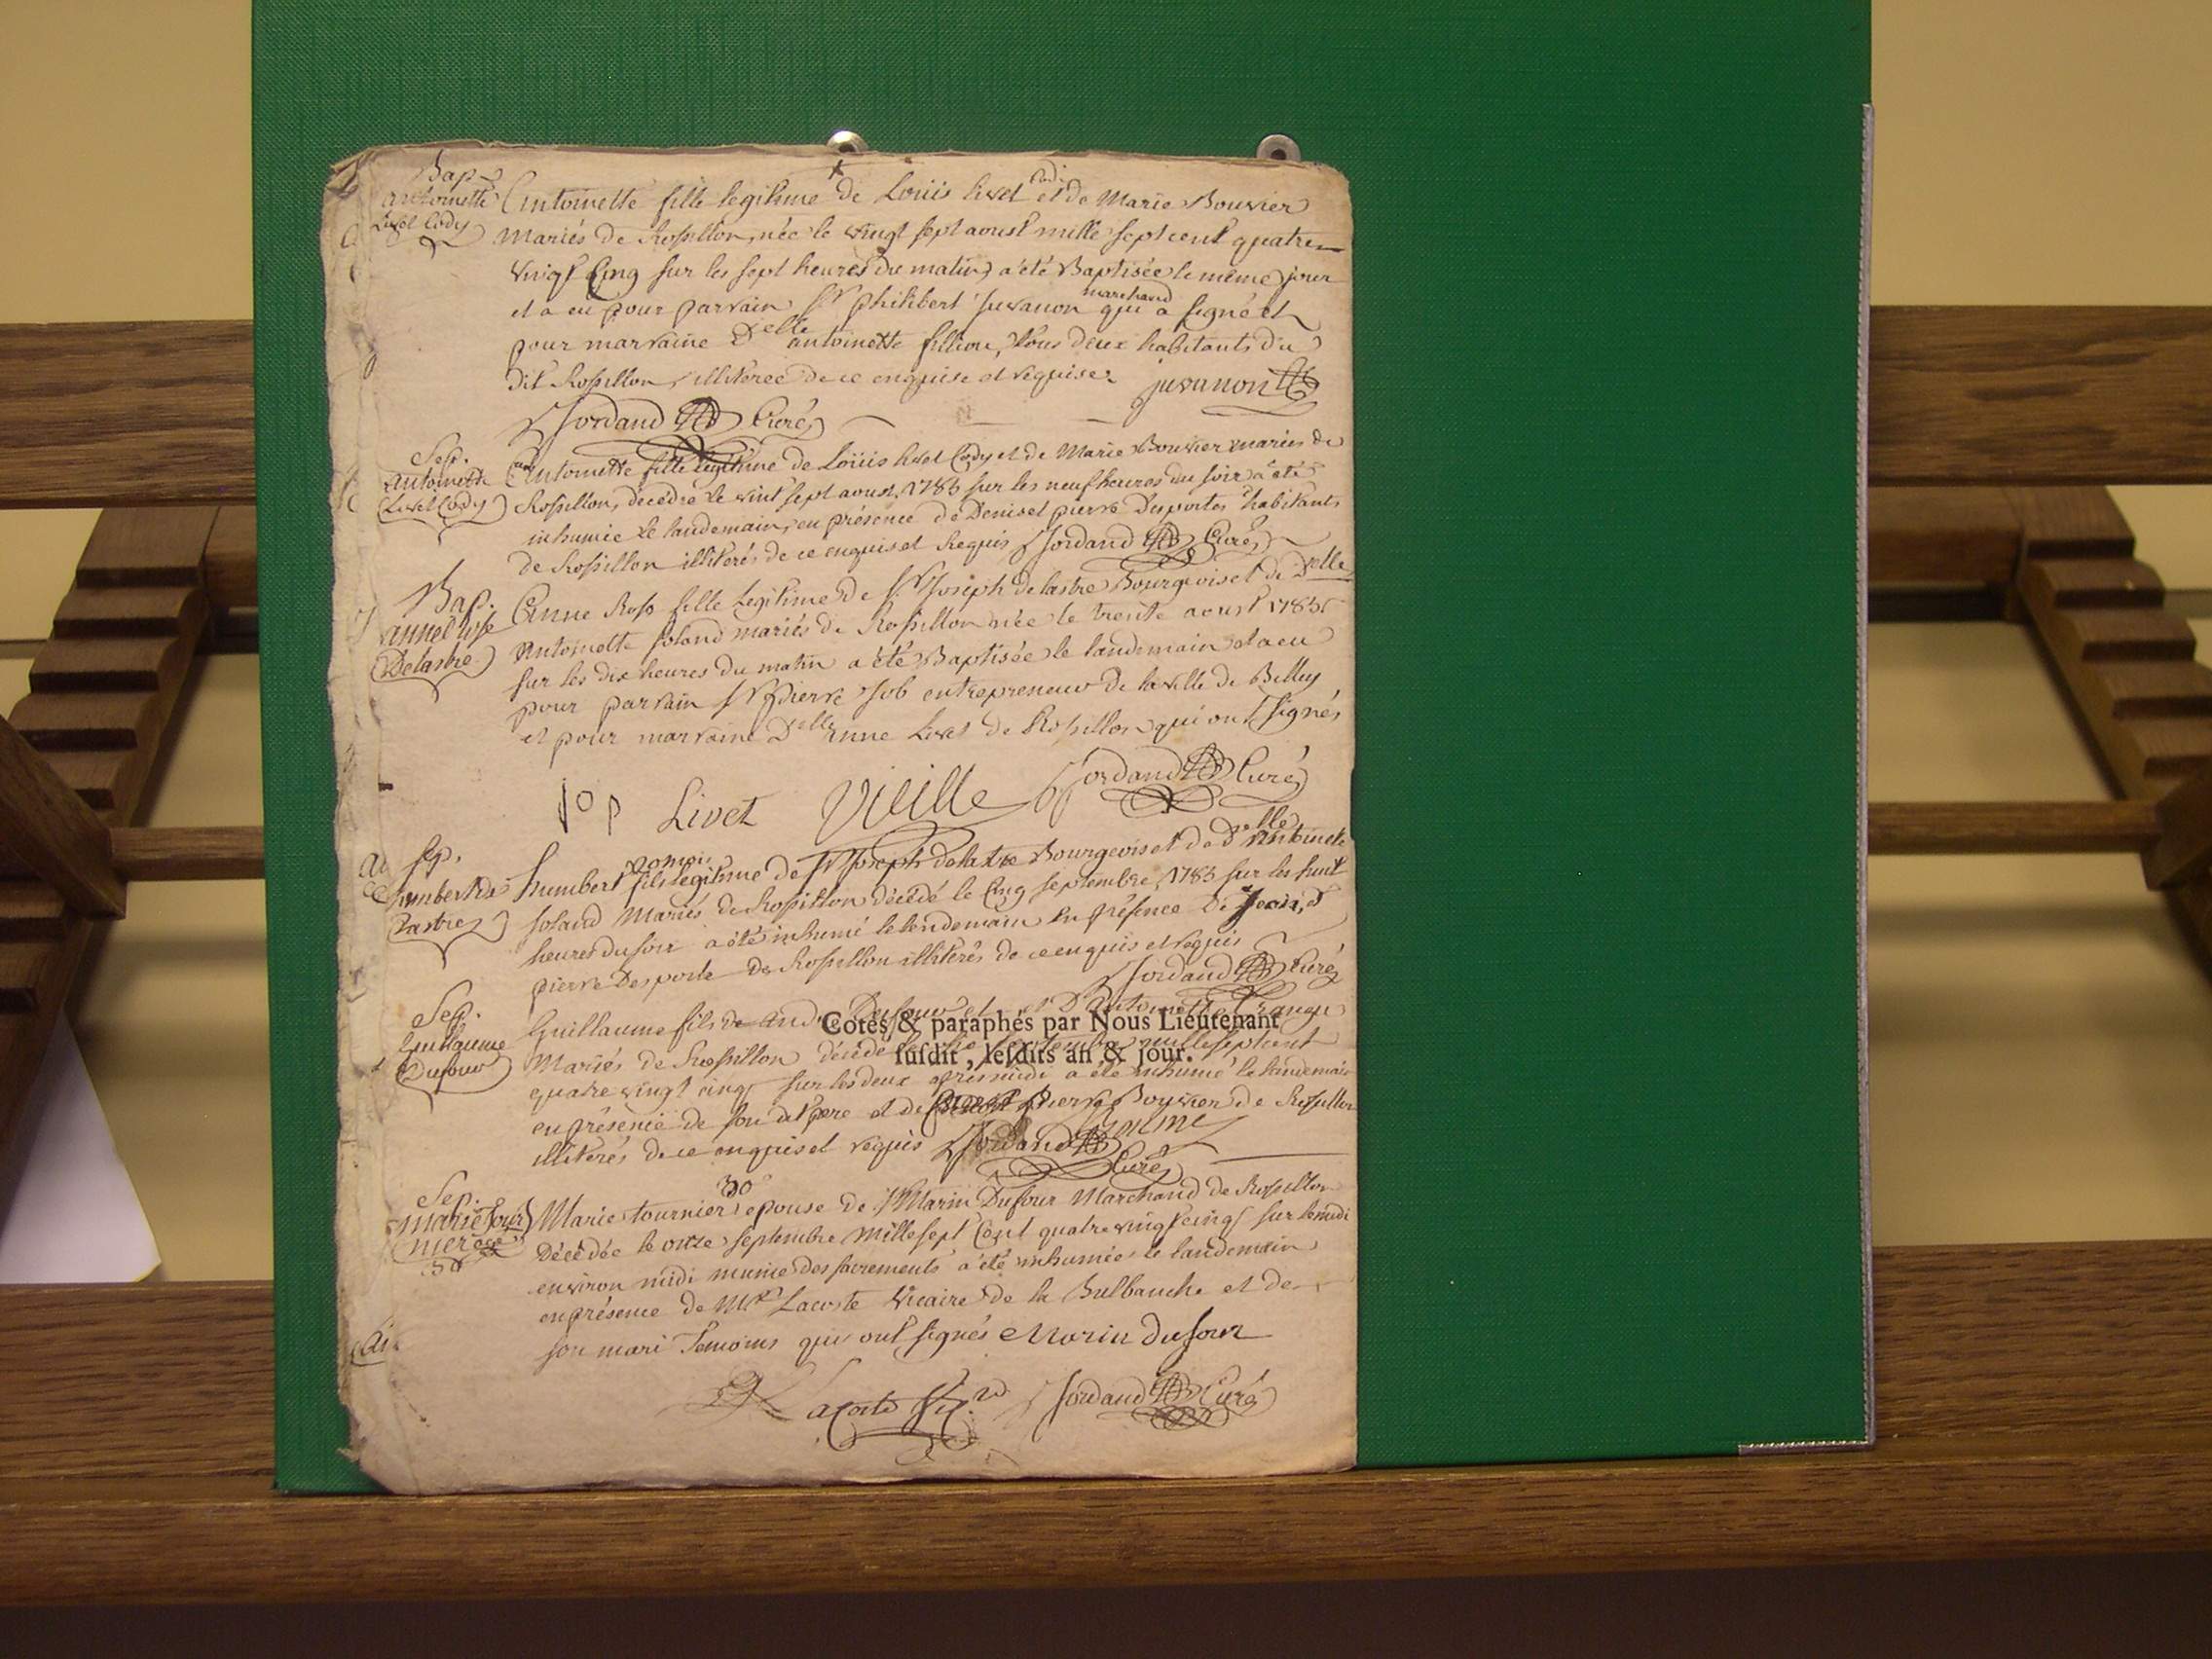 Bap.
antoinette
Livet Cody
Antoinette fille legitime de Loüis livet Codi et de Marie Bouvier
Mariés de Rossillon, née le vingt sept aoust mille sept cent quatre
vingt Cinq sur les sept heures du matin a été Baptisée le même jour
et a eu pour parrain Sr philibert Juvanon marchand qui a signé et
pour marraine Delle antoinette fillion, tous deux habitants du
dit Rossillon, illiterée de ce enquise et requise. juvanon
Jordand Curé
Sep.
Antoinette
Livet Cody
Antoinette fille legitime de Loüis livet Cody et de Marie Bouvier mariés de
Rossillon, decedée le vint sept aoust 1785 sur les neuf heures du soir a été
inhumée le landemain, en présence de Denis et pierre Desportes habitants
de Rossillon illiterés de ce enquis et Requis Jordand Curé
Bap.
anne Rose
Delastre
Anne Rose fille Legitime de Sr Joseph delastre Bourgeois et de Delle
Antoinette Soland mariés de Rossillon née le trente aoust 1785
sur les dix heures du matin a été Baptisée le landemain et a eu
pour parrain Sr Pierre Job entrepreneur de la ville de Belley
et pour marraine Delle anne Livet de Rossillon qui ont signés
Jop Livet Vieille Jordand Curé
Sep.
humbert de
Lastre
humbert fils legitime de Sr Joseph delatre Bourgeois et de Delle Antoinete
Soland Mariés de Rossillon décédé le Cinq septembre 1785 sur les huit
heures du soir a été inhumé le lendemain En présence de Jean, et
pierre Desporte de Rossillon illiterés de ce enquis et requis
Jordand Curé
Sep.
Guillaume
Dufour
Guillaume fils de Dufour et D'Antoinette
Cotés & paraphés par Nous Lieutenant
Mariés de Rossillon décédé septembre mille sept cent
susdit, lesdits an & jour.
quatre vingt cinq sur les deux apres midi a été inhumé le landemain
en présence de son dit pere et de Pierre Bouvier de Rossillon
illiterés de ce enquis et requis Jordand
Curé
Sep.
marie tour
nier agée
30
30
Marie tournier epouse de Sr Marin Dufour Marchand de Rossillon
Décédée le onze septembre mille sept Cent quatre vingt cinq sur le midi
environ midi munie des sacrements a été inhumée le landemain
en présence de Mre Lacoste Vicaire de la Bulbanche et de
son mari Temoins qui ont signés Marin dufour
Lacoste Vic. Jordand Curé